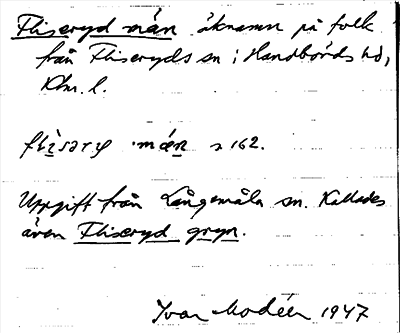 Fliseryd män öknamn på folk
från Fliseryds sn i Handbörds hd,
Klm. l.
flisəry ·mæn s 162.
Uppgift från Långemåla sn. Kallades
även Fliseryd gryn.
Ivar Modéer 1947